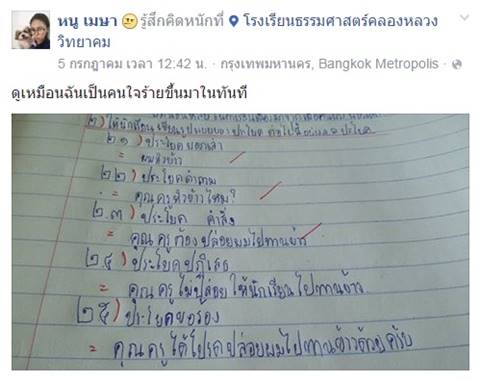 หนู เมษา รู้สึกคิดหนักที่ โรงเรียนธรรมศาสตร์คลองหลวง
วิทยาคม
5 กรกฎาคม เวลา 12:42 น. · กรุงเทพมหานคร, Bangkok Metropolis ·
ดูเหมือนฉันเป็นคนใจร้ายขึ้นมาในทันที
๒) ให้นักเรียน เขียนรูปแบบของ ประโยค ต่อไปนี้ ประโยค
๒.๑) ประโยค บอกเล่า
= ผมหิวข้าว
๒.๒) ประโยคคำถาม
= คุณครูหิวข้าวไหม?
๒.๓) ประโยค คำสั่ง
= คุณครูต้องปล่อยผมไปทานข้าว
๒.๔) ประโยคปฏิเสธ
= คุณครูไม่ปล่อยให้นักเรียนไปทานข้าว
๒.๕) ประโยคขอร้อง
= คุณครูได้โปรดปล่อยผมไปทานข้าวด้วยครับ